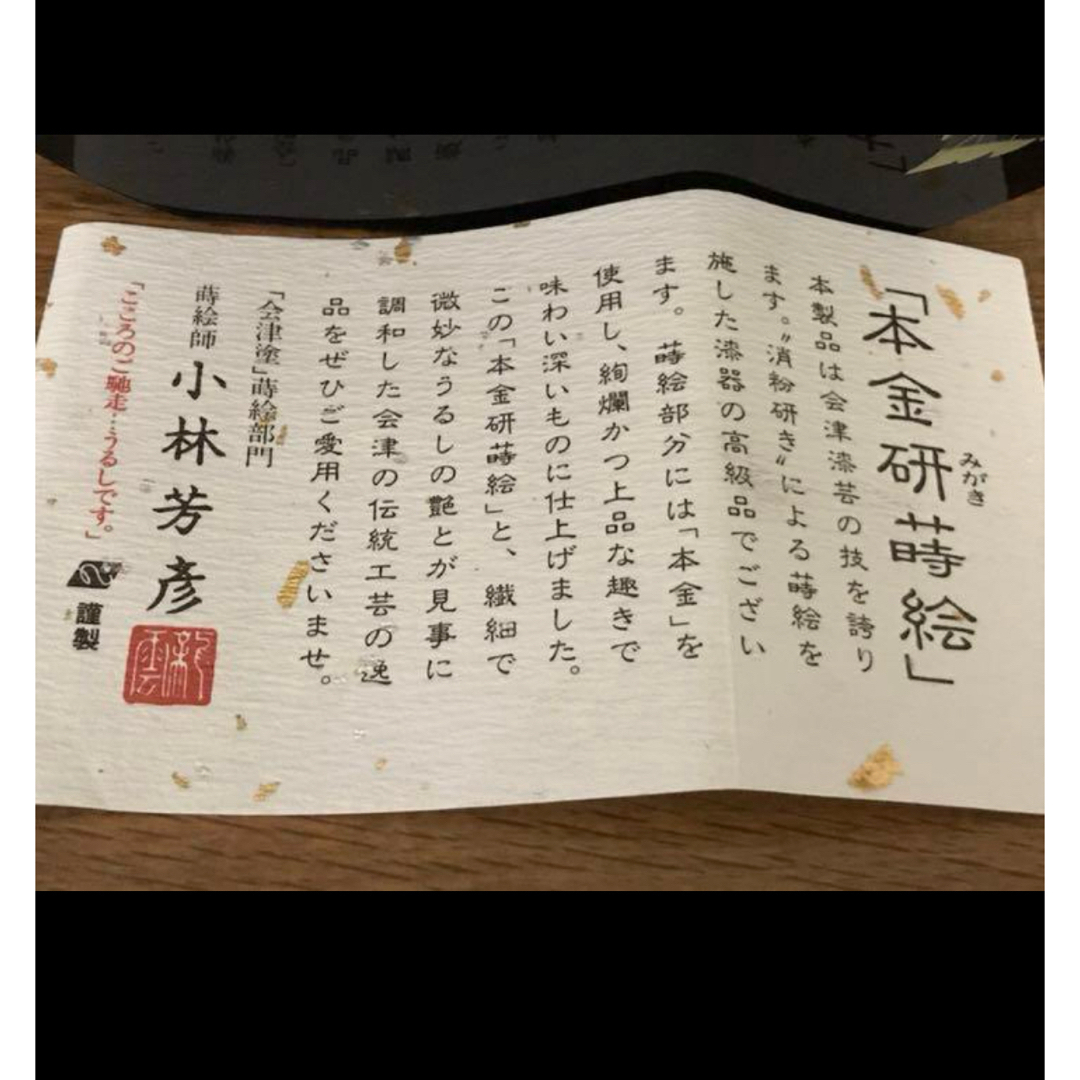 「本金研蒔絵」
みがき
本製品は会津漆芸の技を誇り
ます。〝消粉研き〟による蒔絵を
施した漆器の高級品でござい
ます。蒔絵部分には「本金」を
使用し、絢爛かつ上品な趣きで
味わい深いものに仕上げました。
この「本金研蒔絵」と、繊細で
微妙なうるしの艶とが見事に
調和した会津の伝統工芸の逸
品をぜひご愛用くださいませ。
「会津塗」蒔絵部門
蒔絵師 小林芳彦
「こころのご馳走…うるしです。」
謹製